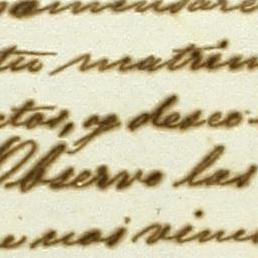 tu matrim
ctos, y deseo
Observo las
nos vimo